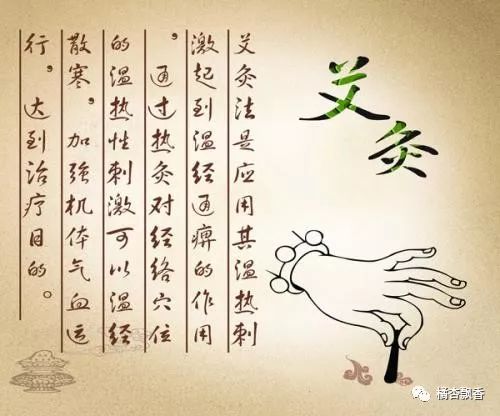 艾灸
艾灸法是应用其温热刺
激起到温经通痹的作用
，通过热灸对经络穴位
的温热性刺激可以温经
散寒，加强机体气血运
行，达到治疗目的。
橘杏飘香